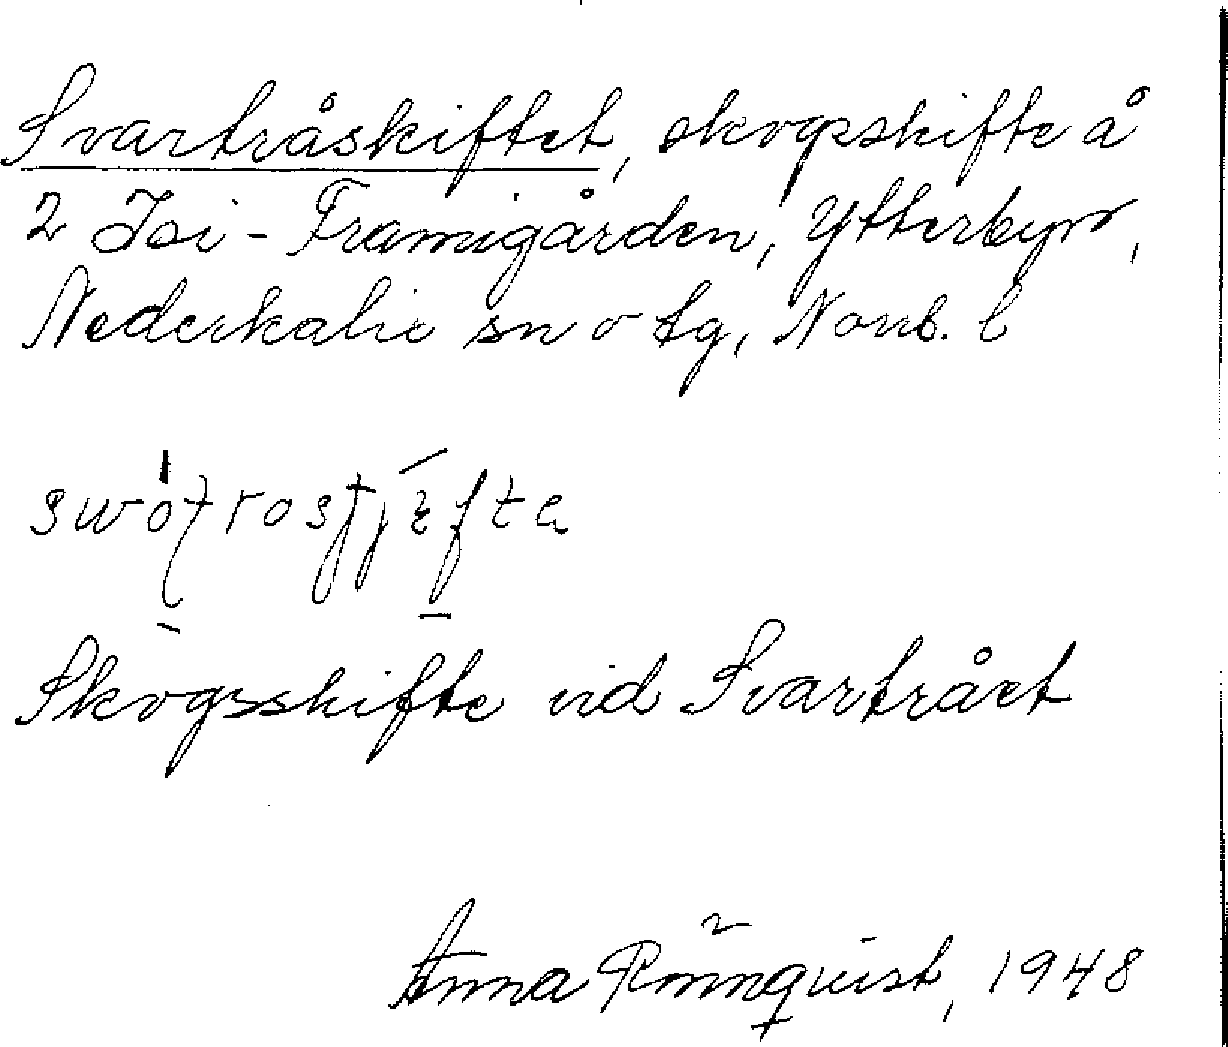 Svartråskiftet, skogsskifte å
2 Isi-Framigården, Ytterbyn,
Nederkalix sn o tg, Norrb. l
Skogsskifte vid Svartrået
Anna Rönnquist, 1948